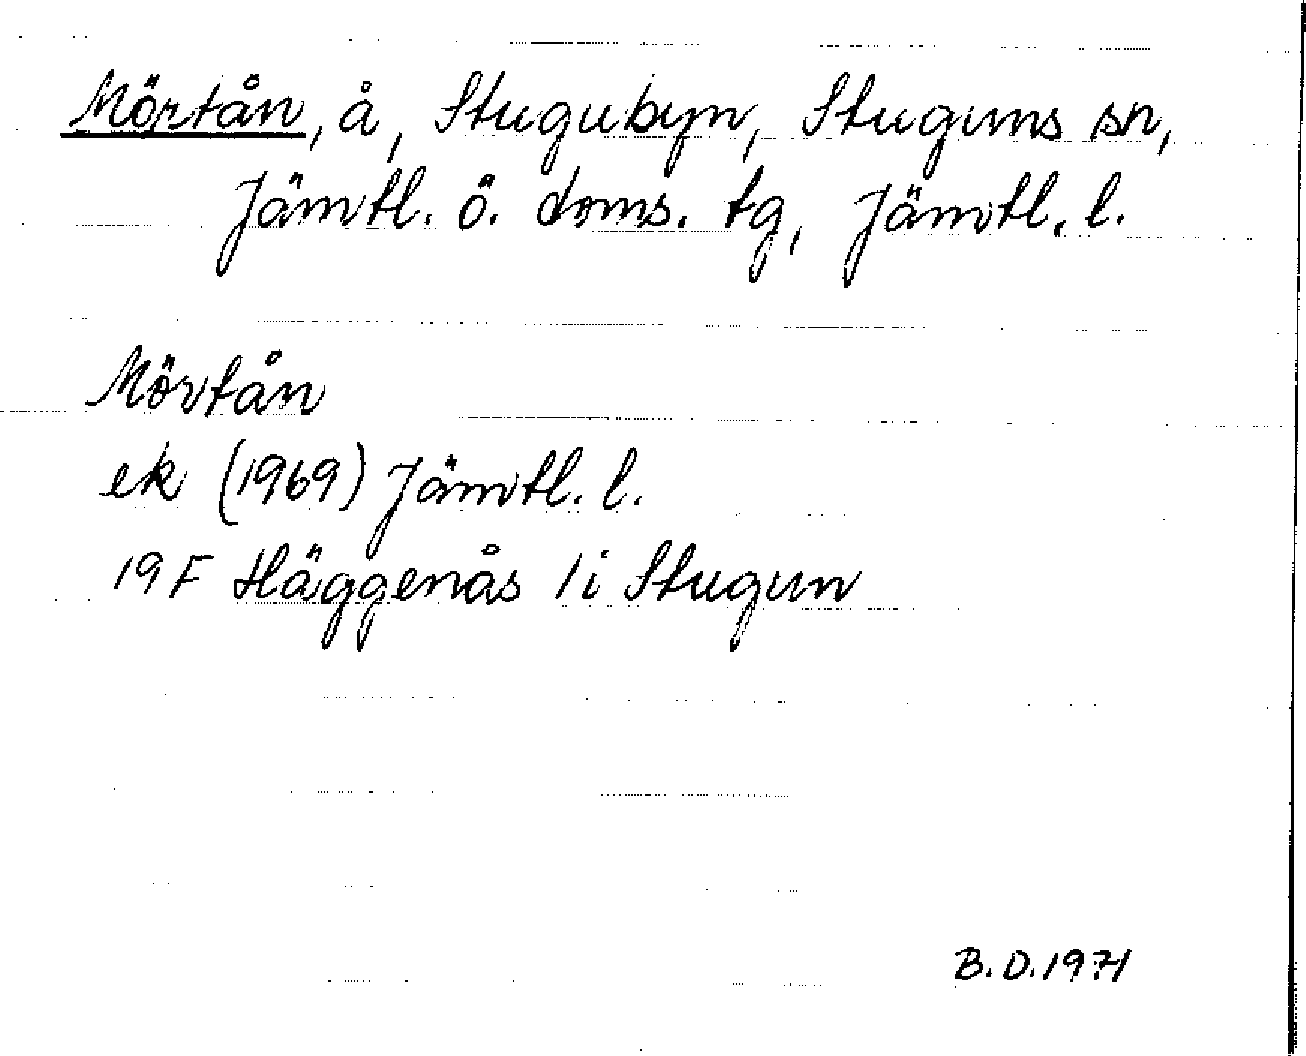 Mörtån, å, Stugubyn, Stuguns sn,
Jämtl. ö. doms. tg, Jämtl. l.
Mörtån
ek (1969) Jämtl. l.
19 F Häggenås / i Stugun
B.D. 1971